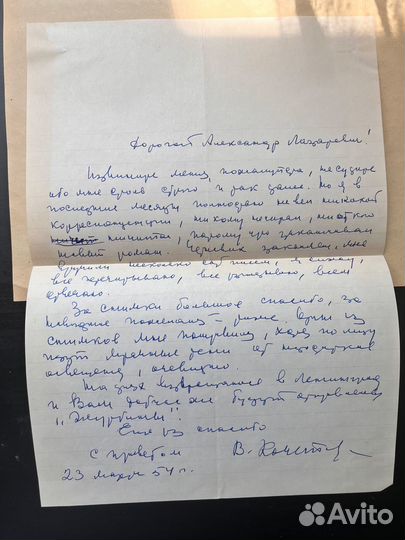 Дорогой Александр Лазаревич!
Извините меня, пожалуйста, не судите
обо мне строго и так далее. Но я в
последние месяцы полностью не вёл никакой
корреспонденции, никому не писал, ни от кого
не читал, потому что заканчивал
новый роман. Черновик закончен, мне
вручили несколько сот писем, я сижу,
всё перечитываю, всё разбираю, всем
отвечаю.
За снимки большое спасибо, за
пожелания – тоже. Один из
снимков мне понравился, хотя по лицу
идут мрачные тени от
освещения, очевидно.
На днях возвращаюсь в Ленинград
и Вам тотчас же будут отправлены
"Журбины".
Ещё раз спасибо
С приветом В. Кочетов
23 марта 54 г.
Avito